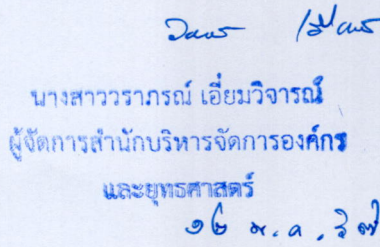 นางสาววราภรณ์ เอี่ยมวิจารณ์
ผู้จัดการสำนักบริหารจัดการองค์กร
และยุทธศาสตร์
๑๒ ม.ค. ๖๗